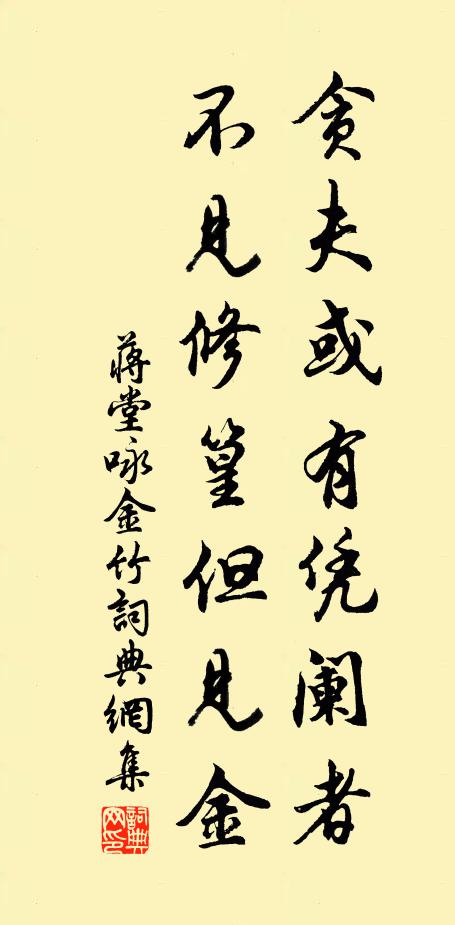 贪夫或有凭阑者
不见修篁但见金
蒋堂咏金竹詞典網集
詞典网印